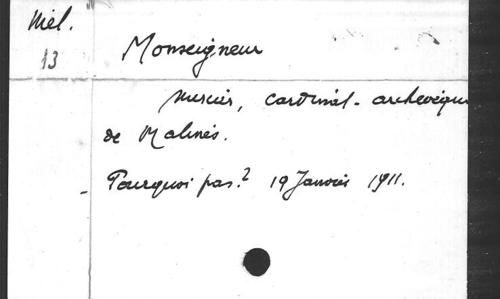 Mél.
13
Monseigneur
Mercier, cardinal-archevêque
de Malines.
- Pourquoi pas? 19 Janvier 1911.